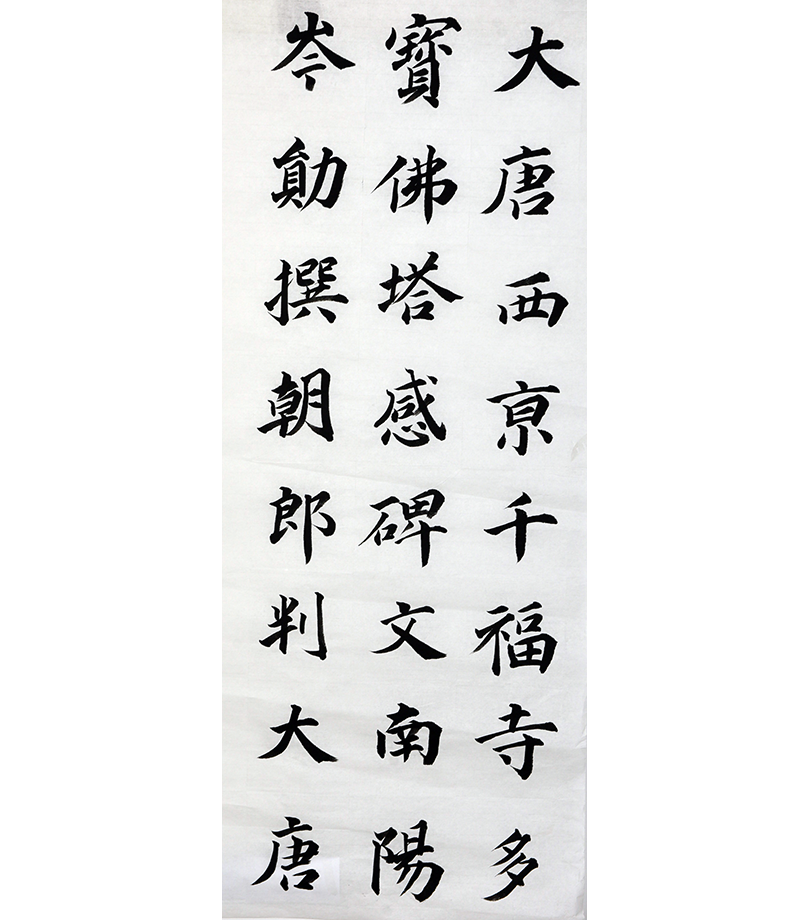 大唐西京千福寺多
寶佛塔感碑文南陽
岑勛撰朝郎判大唐